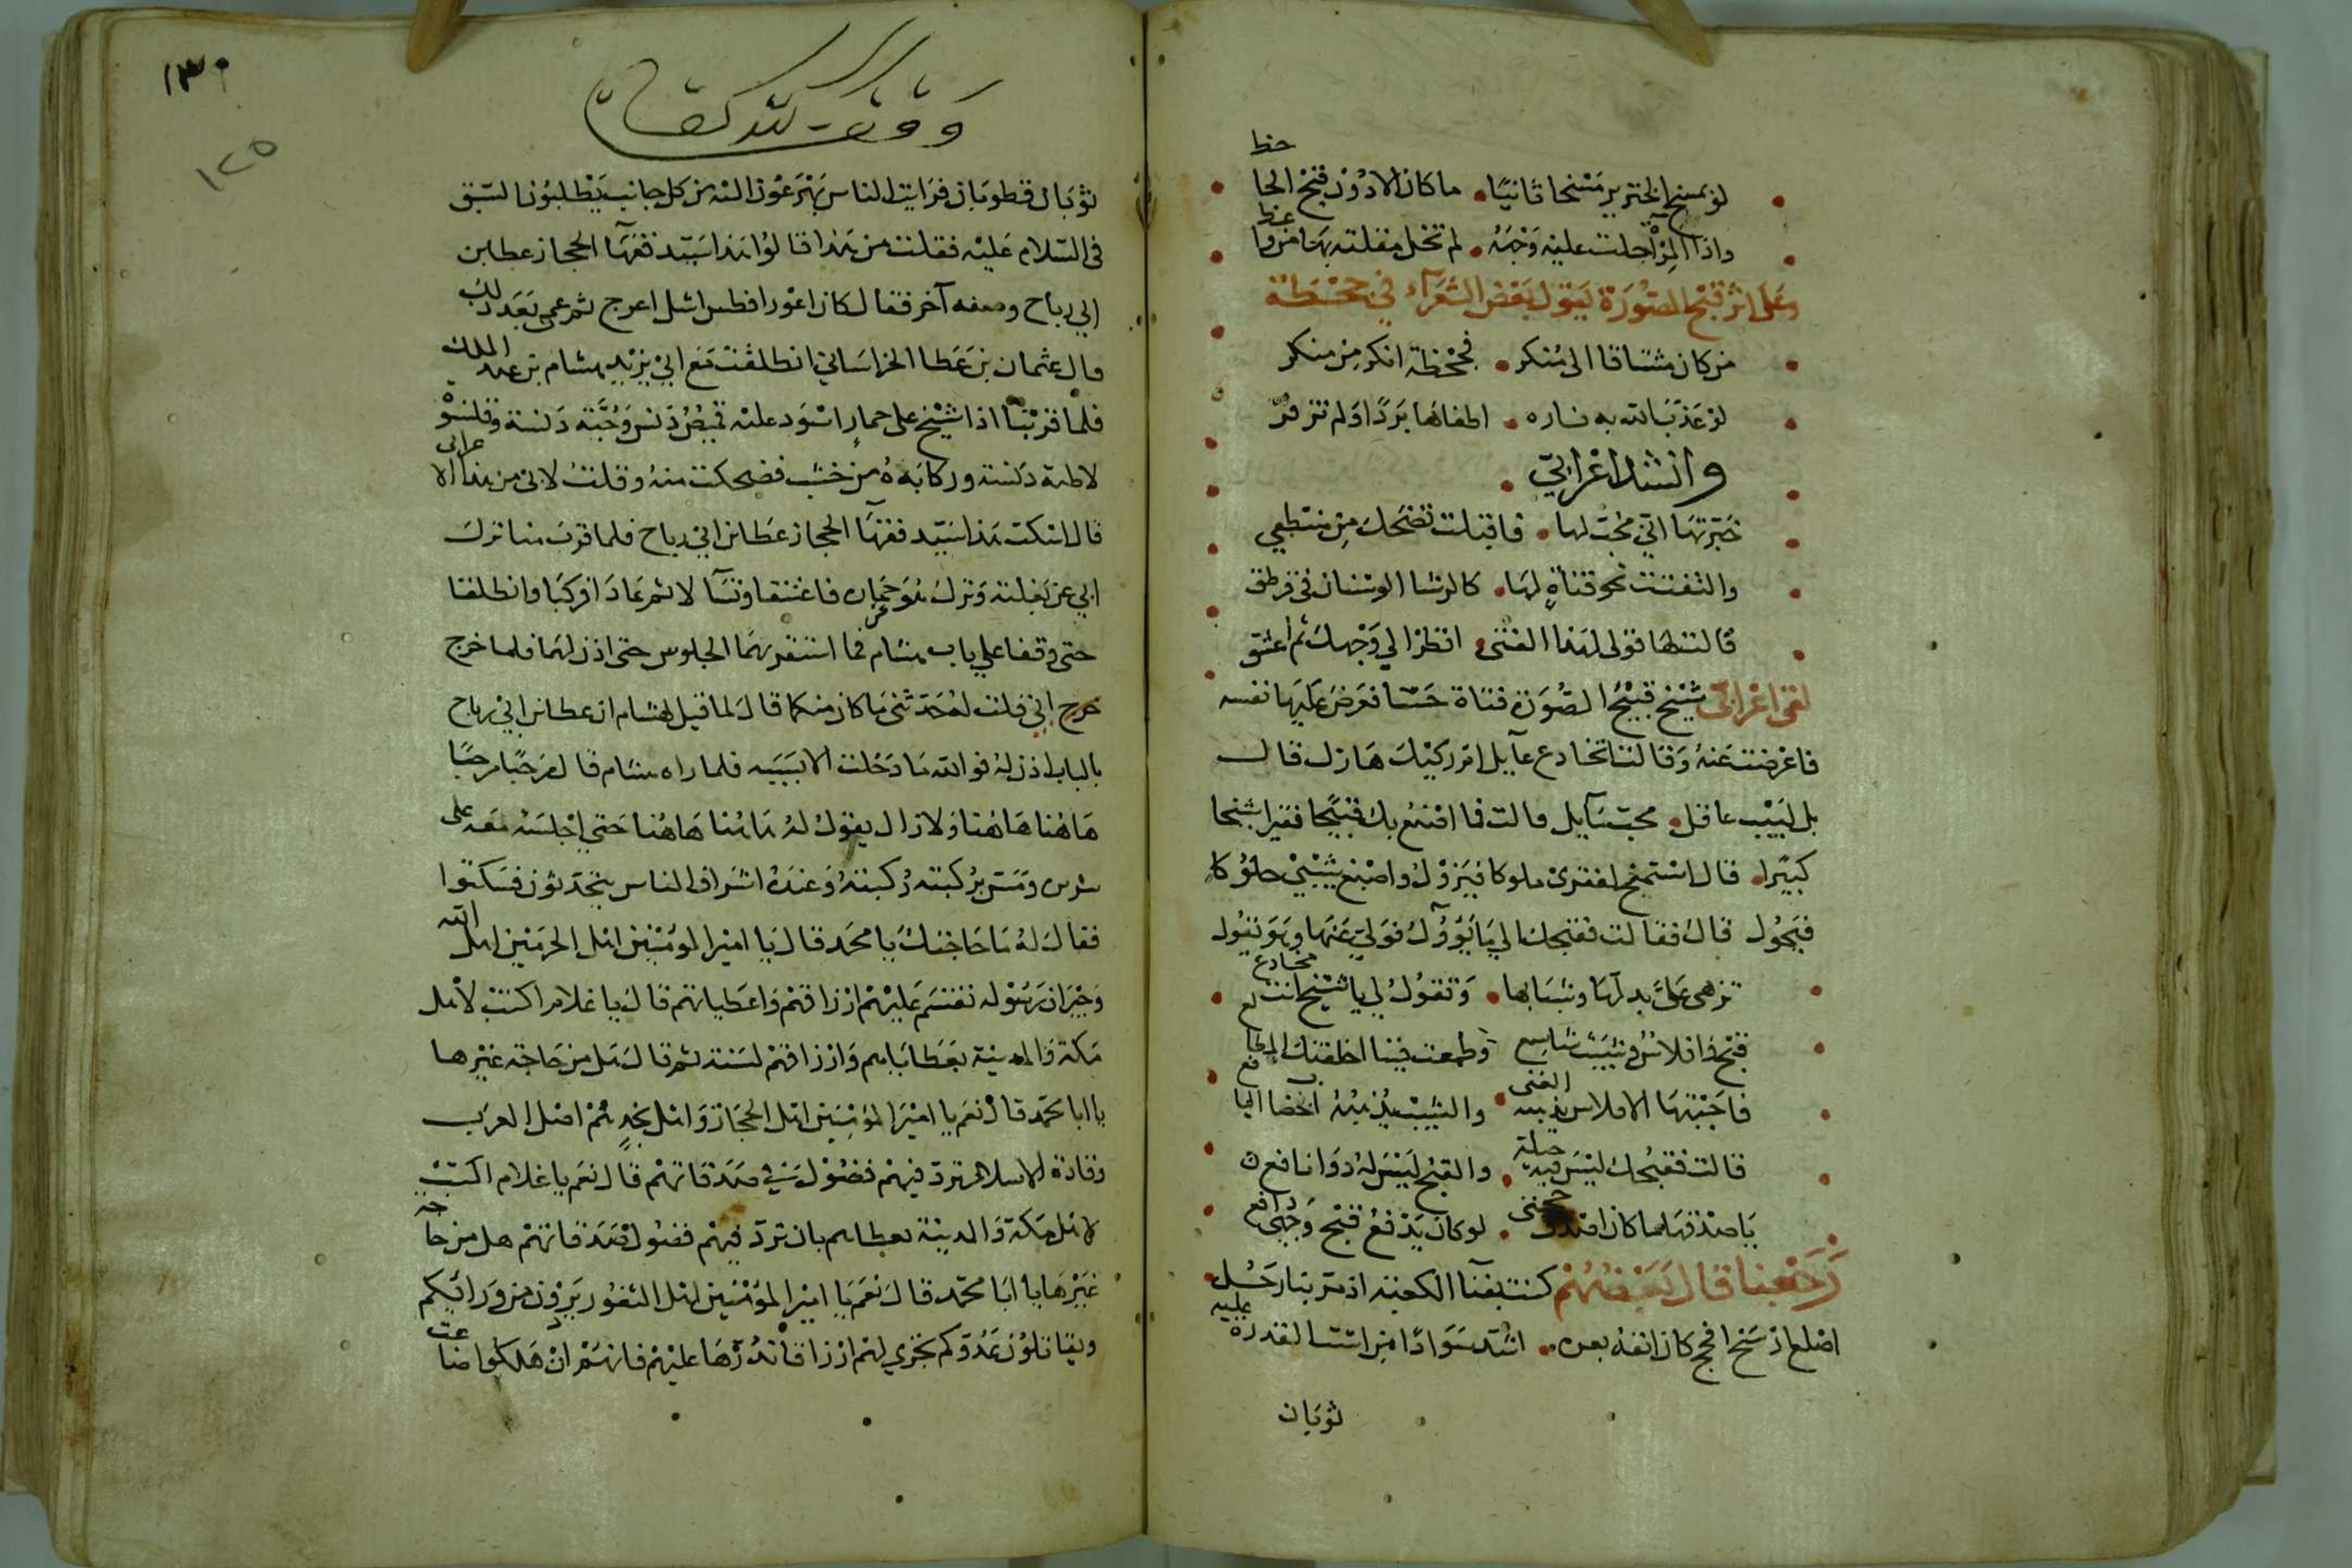 لو يمسخ الخنزير مسخا ثانيا ما كان الا دون قبح الجاحظ
واذا المرآة جلت عليه وجهه لم تخل مقلته بها من واعظ
وعلى اثر قبح الصورة يقول بعض الشعراء في جحظة
من كان مشتاقا الى منكر فجحظة انكر من منكر
لو عذب الله به ناره اطفاها بردا ولم تزفر
وانشد اعرابي
خبرتها اني محب لها فاقبلت تضحك من منطقي
والتفتت نحو فتاة لها كالرشا الوسنان في قرطق
قالت لها قولي لهذا الفتى انظر الي وجهك ثم اعشق
لقي اعرابي شيخ قبيح الصورة فتاة حسنا فعرض عليها نفسه
فاعرضت عنه وقالت اتخادع عايل ام ركيك هازل قال
بل لبيب عاقل محب سايل قالت فما اقنع بك قبيحا فقيرا شيخا
كبيرا قال استمنح لفقري ملوكا فيزول واصبغ شيبي حلوكا
فيحول قال فقالت فقبحك الي ما يؤول فولي عنها وهو يقول
تزهى على بدلها وشبابها وتقول لي يا شيخ انت مخادع
قبح وافلاس وشيب شاسع وطمعت فينا اخلفتك المطامع
فاجبتها الافلاس يذهبه الغنى والشيب يذهبه الخضاب
قالت فقبحك ليس فيه حيلة والقبح ليس له دوا نافع
يا صدقها ما كان حجتي لو كان يدفع قبح وجهي دافع
رجعنا قال بعضهم كنت بفنا الكعبة اذ مر بنا رجل
اصلع ارسخ افحج كان انفه بعره اشد سوادا من است القدر عليه
ثوبان
١٣٠
١٢٥
وقف لله تعالى
ثوبان قطوبان فرايت الناس يهرعون اليه من كل جانب يطلبون السبق
في السلام عليه فقلت من هذا قالوا هذا سيد فقها الحجاز عطا بن
ابي رباح وصفه آخر فقال كان اعور افطس اشل اعرج ثم عمي بعد ذلك
قال عثمان بن عطا الخراساني انطلقت مع ابي يزيد هشام بن عبد الملك
فلما قربنا اذا شيخ على حمار اسود عليه قميص دنس وجبة دنسة وقلنسوة
لاطية دنسة وركابه من خشب فضحكت منه وقلت لابي من هذا الاعرابي
قال اسكت هذا سيد فقها الحجاز عطا بن ابي رباح فلما قرب منا نزل
ابي عن بغلته ونزل هو عن حماره فاعتنقا وتسآلا ثم عادا فركبا وانطلقا
حتى وقفا علي باب هشام فما استقر بهما الجلوس حتى اذن لهما فلما خرج
خرج ابي قلت له حدثني ما كان منكما قال لما قيل لهشام ان عطا بن ابي رباح
بالباب اذن له فوالله ما دخلت الا بسببه فلما راه هشام قال مرحبا مرحبا
هاهنا هاهنا ولا زال يقول له هاهنا هاهنا حتى اجلسه معه على
سرير ومس بركبته ركبته وعنده اشراف الناس يتحدثون فسكتوا
فقال له ما حاجتك يا با محمد قال يا امير المؤمنين اهل الحرمين اهل الله
وجيران رسوله تقسم عليهم ارزاقهم واعطياتهم قال يا غلام اكتب لاهل
مكة والمدينة بعطاياهم وارزاقهم لسنة ثم قال هل من حاجة غيرها
يا ابا محمد قال نعم يا امير المؤمنين اهل الحجاز واهل نجد هم اصل العرب
وقادة الاسلام ترد فيهم فضول صدقاتهم قال نعم يا غلام اكتب
لاهل مكة والمدينة بعطاهم بان ترد فيهم فضول صدقاتهم هل من حاجة
غيرها يا ابا محمد قال نعم يا امير المؤمنين اهل الثغور يرون من ورائكم
ويقاتلون عدوكم تجري لهم ارزاقا تدرها عليهم فانهم ان هلكوا ضاعت